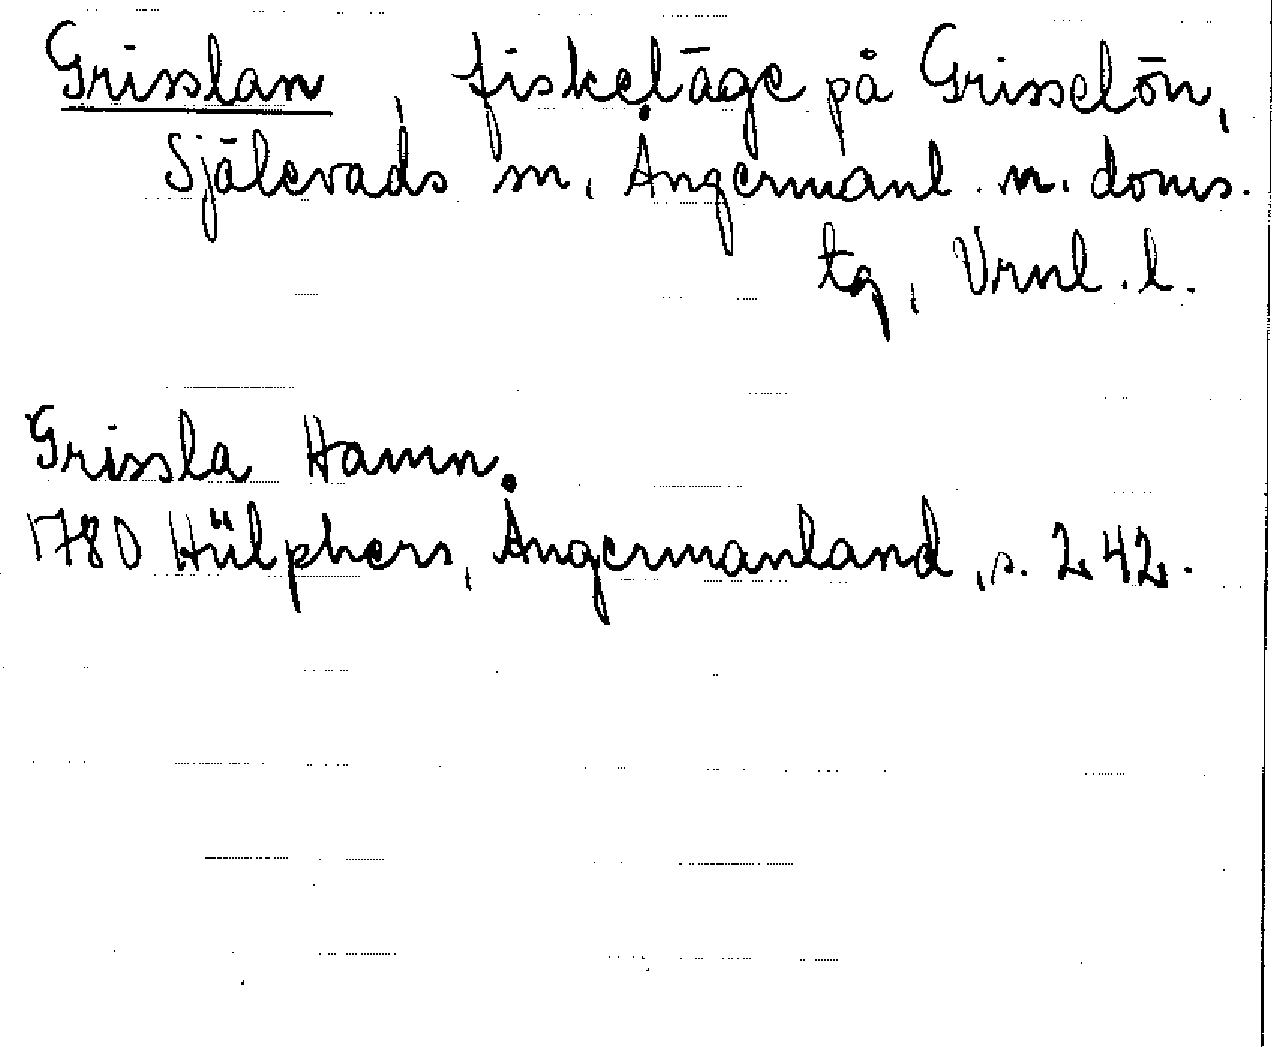 Grisslan, fiskeläge på Grisselön,
Själevads sn, Ångermanl. n. doms.
tg, Vrnl. l.
Grissla Hamn.
1780 Hülphers, Ångermanland, s. 242.